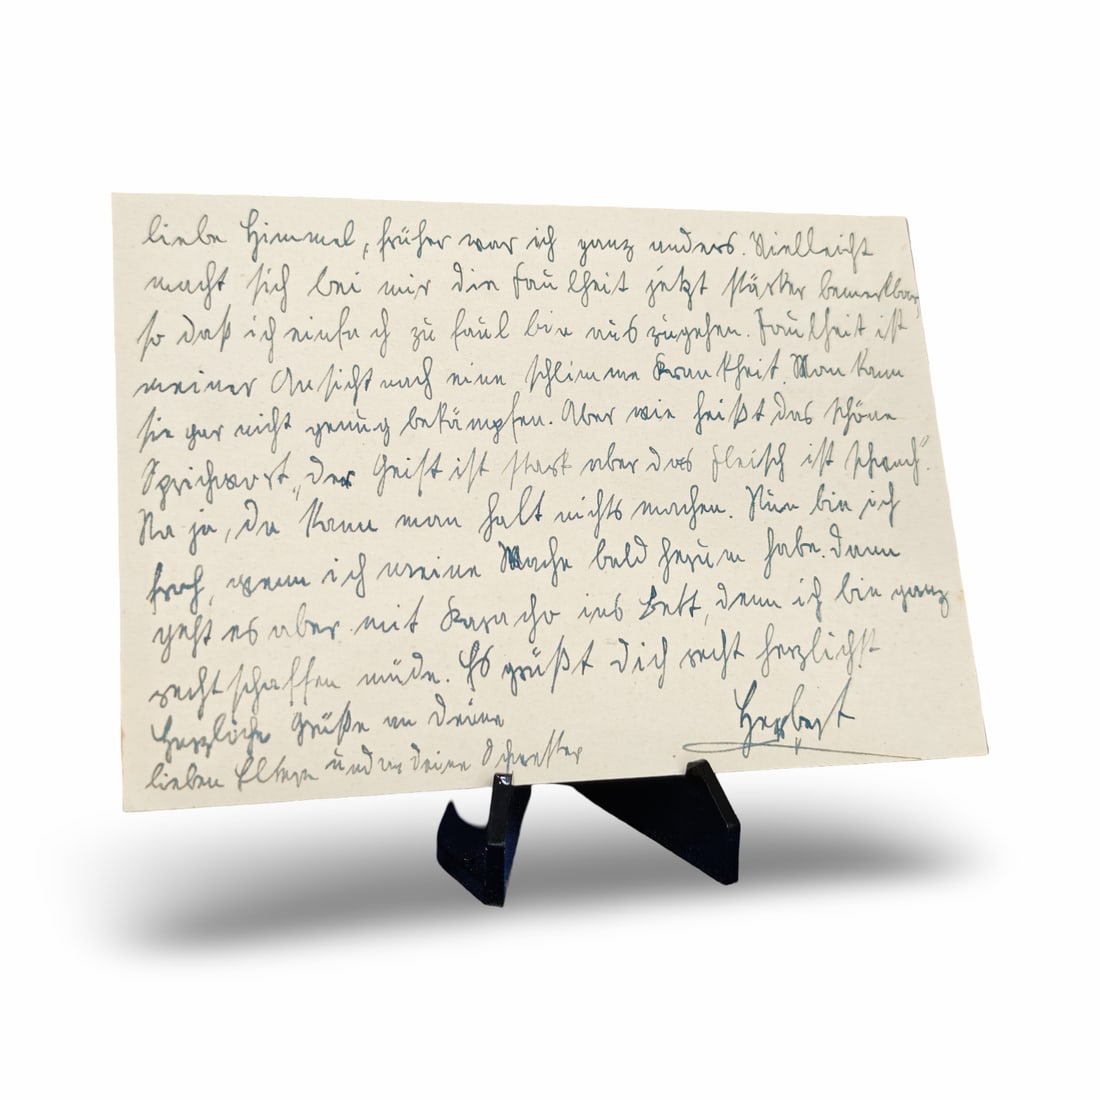 liebe Himmel, früher war ich ganz anders. Vielleicht
macht sich bei mir die Faulheit jetzt stärker bemerkbar,
so daß ich einfach zu faul bin auszugehen. Faulheit ist
meiner Ansicht nach eine schlimme Krankheit. Man kann
sie gar nicht genug bekämpfen. Aber wie heißt das schöne
Sprichwort „der Geist ist stark aber das Fleisch ist schwach".
Na ja, da kann man halt nichts machen. Nun bin ich
froh, wenn ich meine Wache bald herum habe. Dann
geht es aber mit Karacho ins Bett, denn ich bin ganz
rechtschaffen müde. Es grüßt Dich recht herzlichst
Herbert
Herzliche Grüße an Deine
lieben Eltern und an Deine Schwester